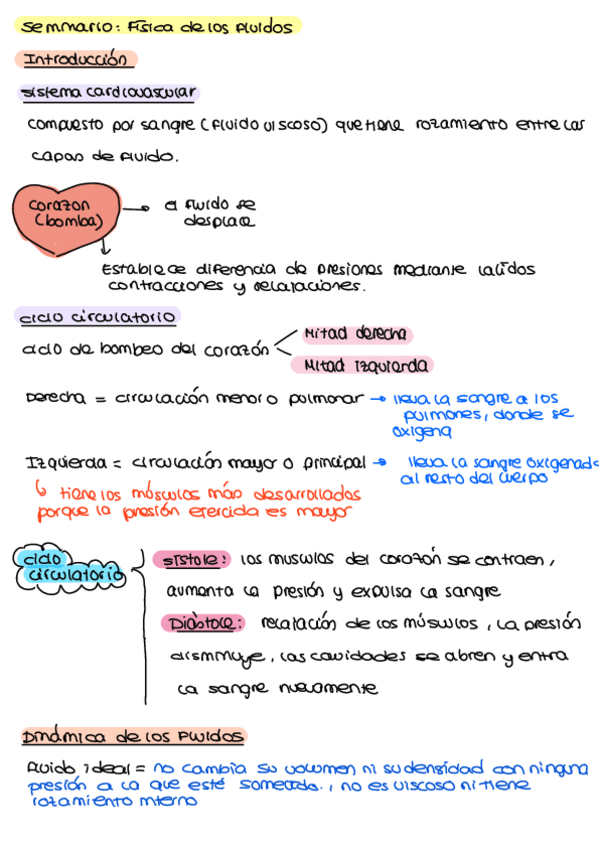 Seminario: Física de los fluidos
Introducción
sistema cardiovascular
compuesto por sangre (fluido viscoso) que tiene rozamiento entre las
capas de fluido.
corazon
(bomba)
el fluido se
desplace
Establece diferencia de presiones mediante latidos
contracciones y relajaciones.
ciclo circulatorio
ciclo de bombeo del corazón
Mitad derecha
Mitad izquierda
Derecha = circulación menor o pulmonar → lleva la sangre a los
pulmones, donde se
oxigena
Izquierda = circulación mayor o principal → lleva la sangre oxigenada
al resto del cuerpo
↳ tiene los músculos más desarrollados
porque la presión ejercida es mayor
ciclo
circulatorio
sístole: los musculos del corazón se contraen,
aumenta la presión y expulsa la sangre
Diástole: relajación de los músculos, la presión
disminuye, las cavidades se abren y entra
la sangre nuevamente
Dinámica de los Fluidos
fluido ideal = no cambia su volumen ni su densidad con ninguna
presión a la que esté sometido., no es viscoso ni tiene
rozamiento interno